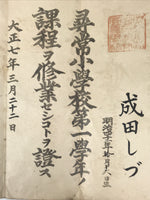 成田しづ
尋常小學校第一學年ノ
課程ヲ修業セシコトヲ證ス
大正七年三月二十二日